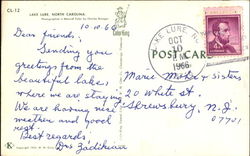 CL-12
LAKE LURE, NORTH CAROLINA
10-10-66
Dear friends,
Sending you
greetings from the
beautiful lake,
where we are staying
We are having nice
weather and good
rest.
Best regards,
LAKE LURE, N.C.
OCT
10
1966
POST CARD
Marie Mohr & sisters
20 White St.
Shrewsbury, N.J.
07701